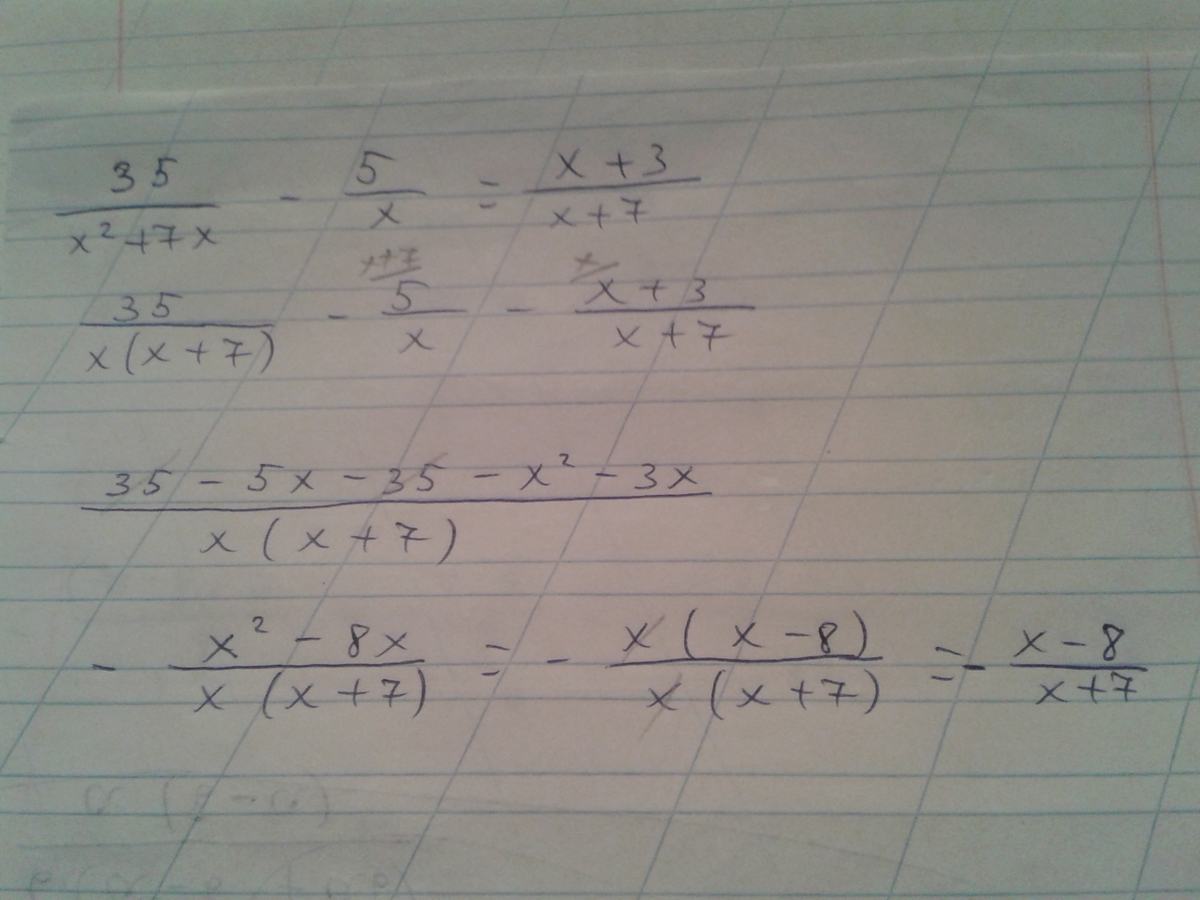 35/(x²+7x) - 5/x = (x+3)/(x+7)
35/(x(x+7)) - 5/x (x+7) - (x+3)/(x+7) (x)
(35 - 5x - 35 - x² - 3x)/(x(x+7))
- (x² - 8x)/(x(x+7)) = - (x(x-8))/(x(x+7)) = - (x-8)/(x+7)